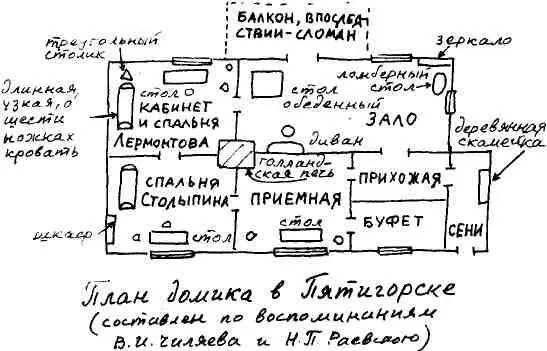 БАЛКОН, ВПОСЛЕД
СТВИИ-СЛОМАН
треугольный
столик
зеркало
длинная,
узкая, о
шести
ножках
кровать
стол
КАБИНЕТ
И СПАЛЬНЯ
ЛЕРМОНТОВА
стол
обеденный
ломберный
стол
ЗАЛО
диван
деревянная
скамейка
голланд-
ская печь
СПАЛЬНЯ
СТОЛЫПИНА
ПРИЕМНАЯ
ПРИХОЖАЯ
БУФЕТ
СЕНИ
шкаф
стол
стол
План домика в Пятигорске
(составлен по воспоминаниям
В.И. Чиляева и Н.П. Раевского)